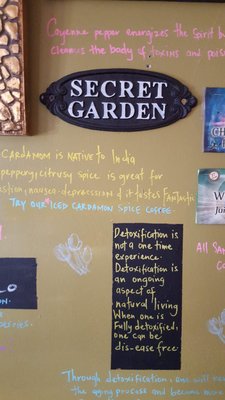 Cayenne pepper energizes the spirit b
cleanses the body of toxins and pois
SECRET
GARDEN
CARDAMOM is NATIVE to India
peppery, citrusy spice is great for
estion, nausea, depression & it tastes fantastic
TRY OUR ICED CARDAMON SPICE COFFEE.
CH
W
Jai
All Sa
Co
Detoxification is
not a one time
experience.
Detoxification is
an ongoing
aspect of
natural living
When one is
Fully detoxified,
one can be
dis-ease free.
Through detoxification, one will re
the aging process and become more